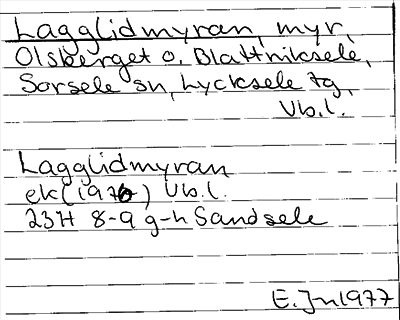 Lagglidmyran, myr,
Olsberget o. Blattniksele,
Sorsele sn, Lycksele tg,
Vb.l.
Lagglidmyran
ek (1976) Vb.l.
23H 8-9 g-h Sandsele
E.Jn 1977